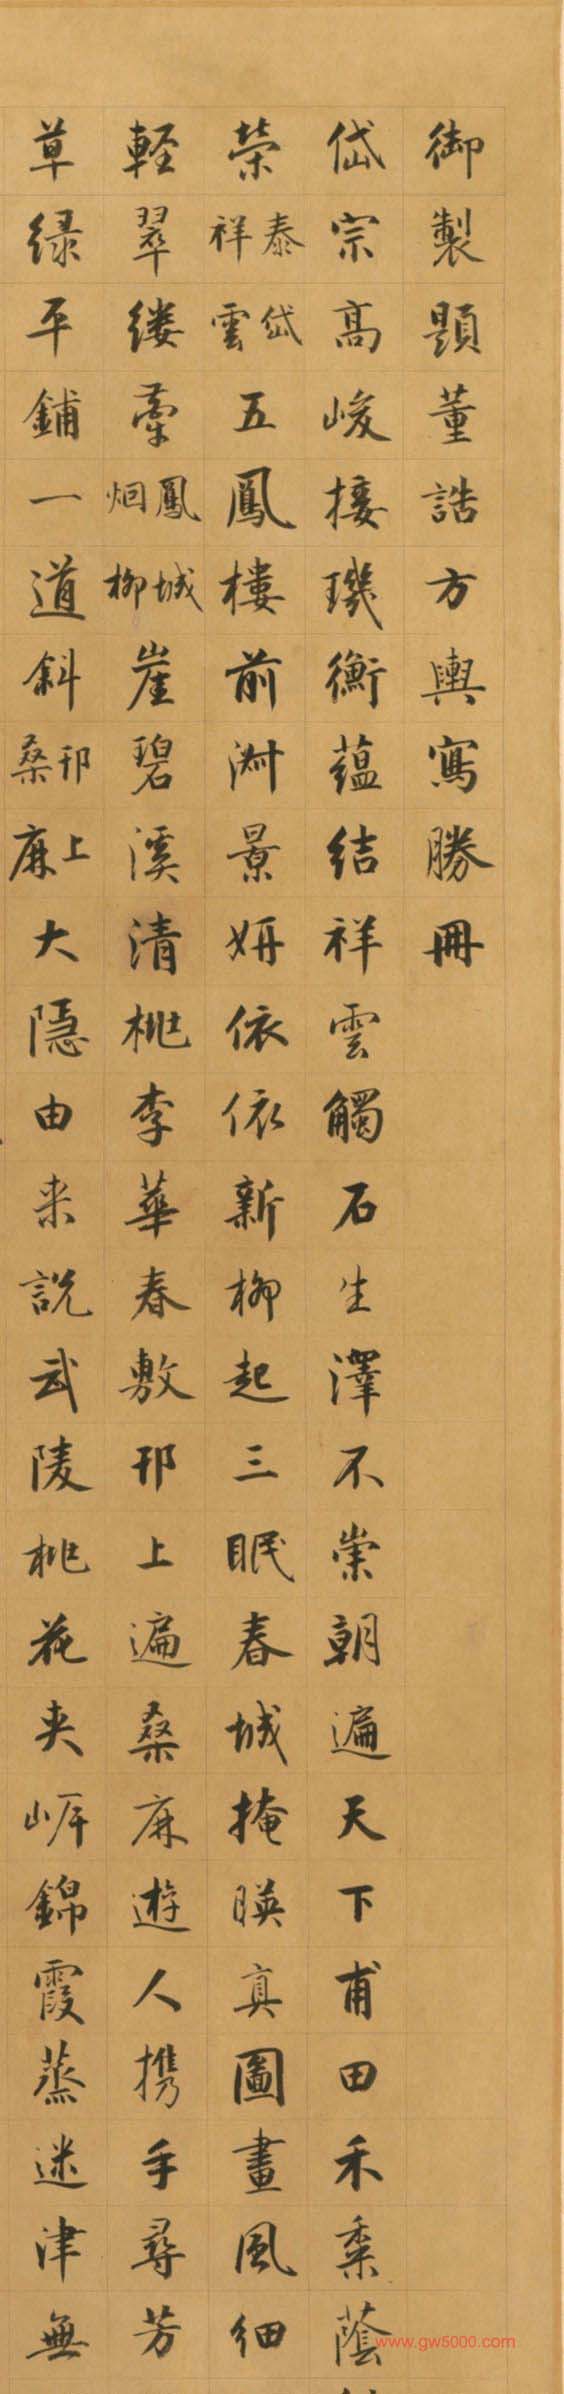 御製題董誥方輿寫勝冊
岱宗高峻接璣衡蘊結祥雲觸石生澤不崇朝遍天下甫田禾黍蔭
榮泰岱祥雲五鳳樓前淑景妍依依新柳起三眠春城掩暎真圖畫風細
輕翠縷縈鳳城烟柳崖碧溪清桃李華春敷邗上遍桑麻遊人携手尋芳
草綠平鋪一道斜邗上桑麻大隱由来說武陵桃花夾崕錦霞蒸迷津無
www.gw5000.com